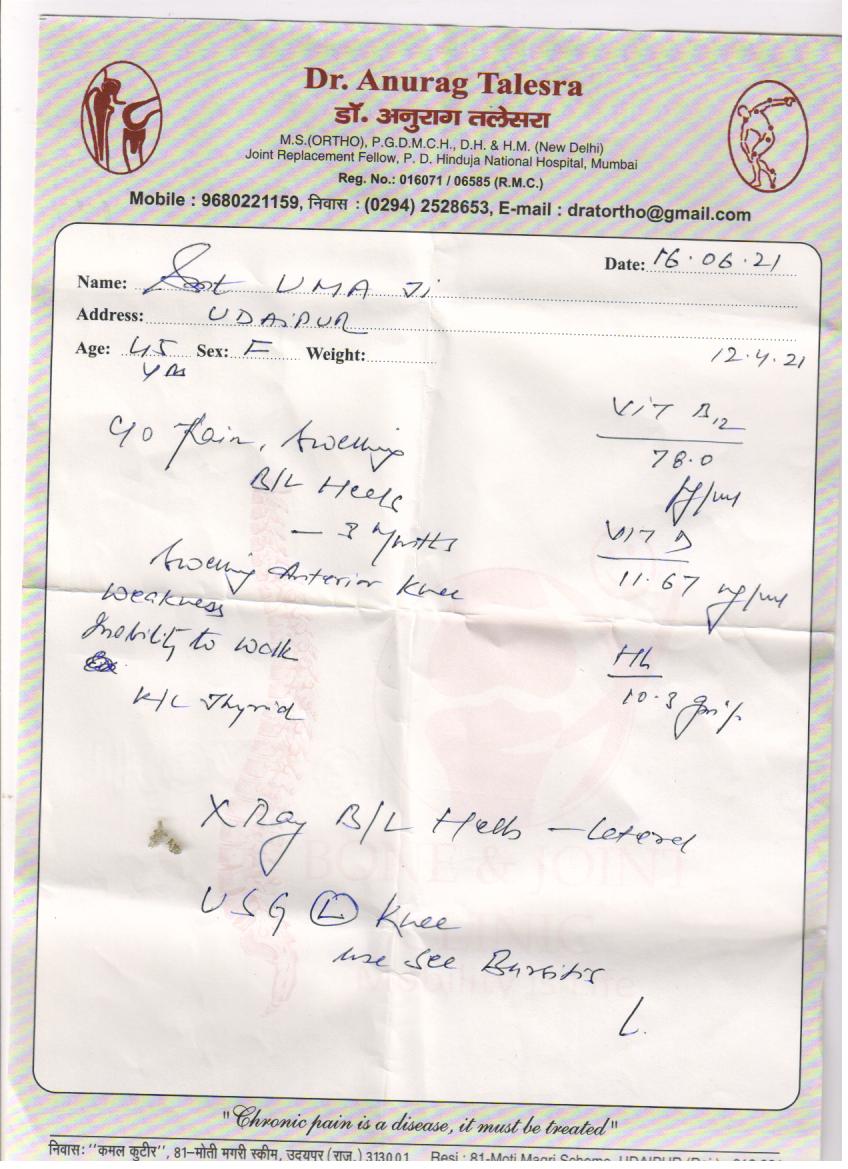 Dr. Anurag Talesra
डॉ. अनुराग तलेसरा
M.S.(ORTHO), P.G.D.M.C.H., D.H. & H.M. (New Delhi)
Joint Replacement Fellow, P. D. Hinduja National Hospital, Mumbai
Reg. No.: 016071 / 06585 (R.M.C.)
Mobile : 9680221159, निवास : (0294) 2528653, E-mail : dratortho@gmail.com
Date: 16.06.21
Name: Smt UMA Ji
Address: UDAIPUR
Age: 45 Sex: F Weight:
yrs
12.4.21
C/o Pain, Swelling
B/L Heels
— 3 months
Swelling Anterior Knee
Weakness
Inability to walk
K/C Thyroid
VIT B12
78.0
pg/ml
VIT D
11.67 ng/ml
Hb
10.3 gm%
X Ray B/L Heels — Lateral
USG L Knee
Bursitis
BONE & JOINT
CLINIC
Mobility is Life
"Chronic pain is a disease, it must be treated"
निवास: "कमल कुटीर", 81-मोती मगरी स्कीम, उदयपुर (राज.) 313001
Resi : 81-Moti Magri Scheme, UDAIPUR (Raj.)